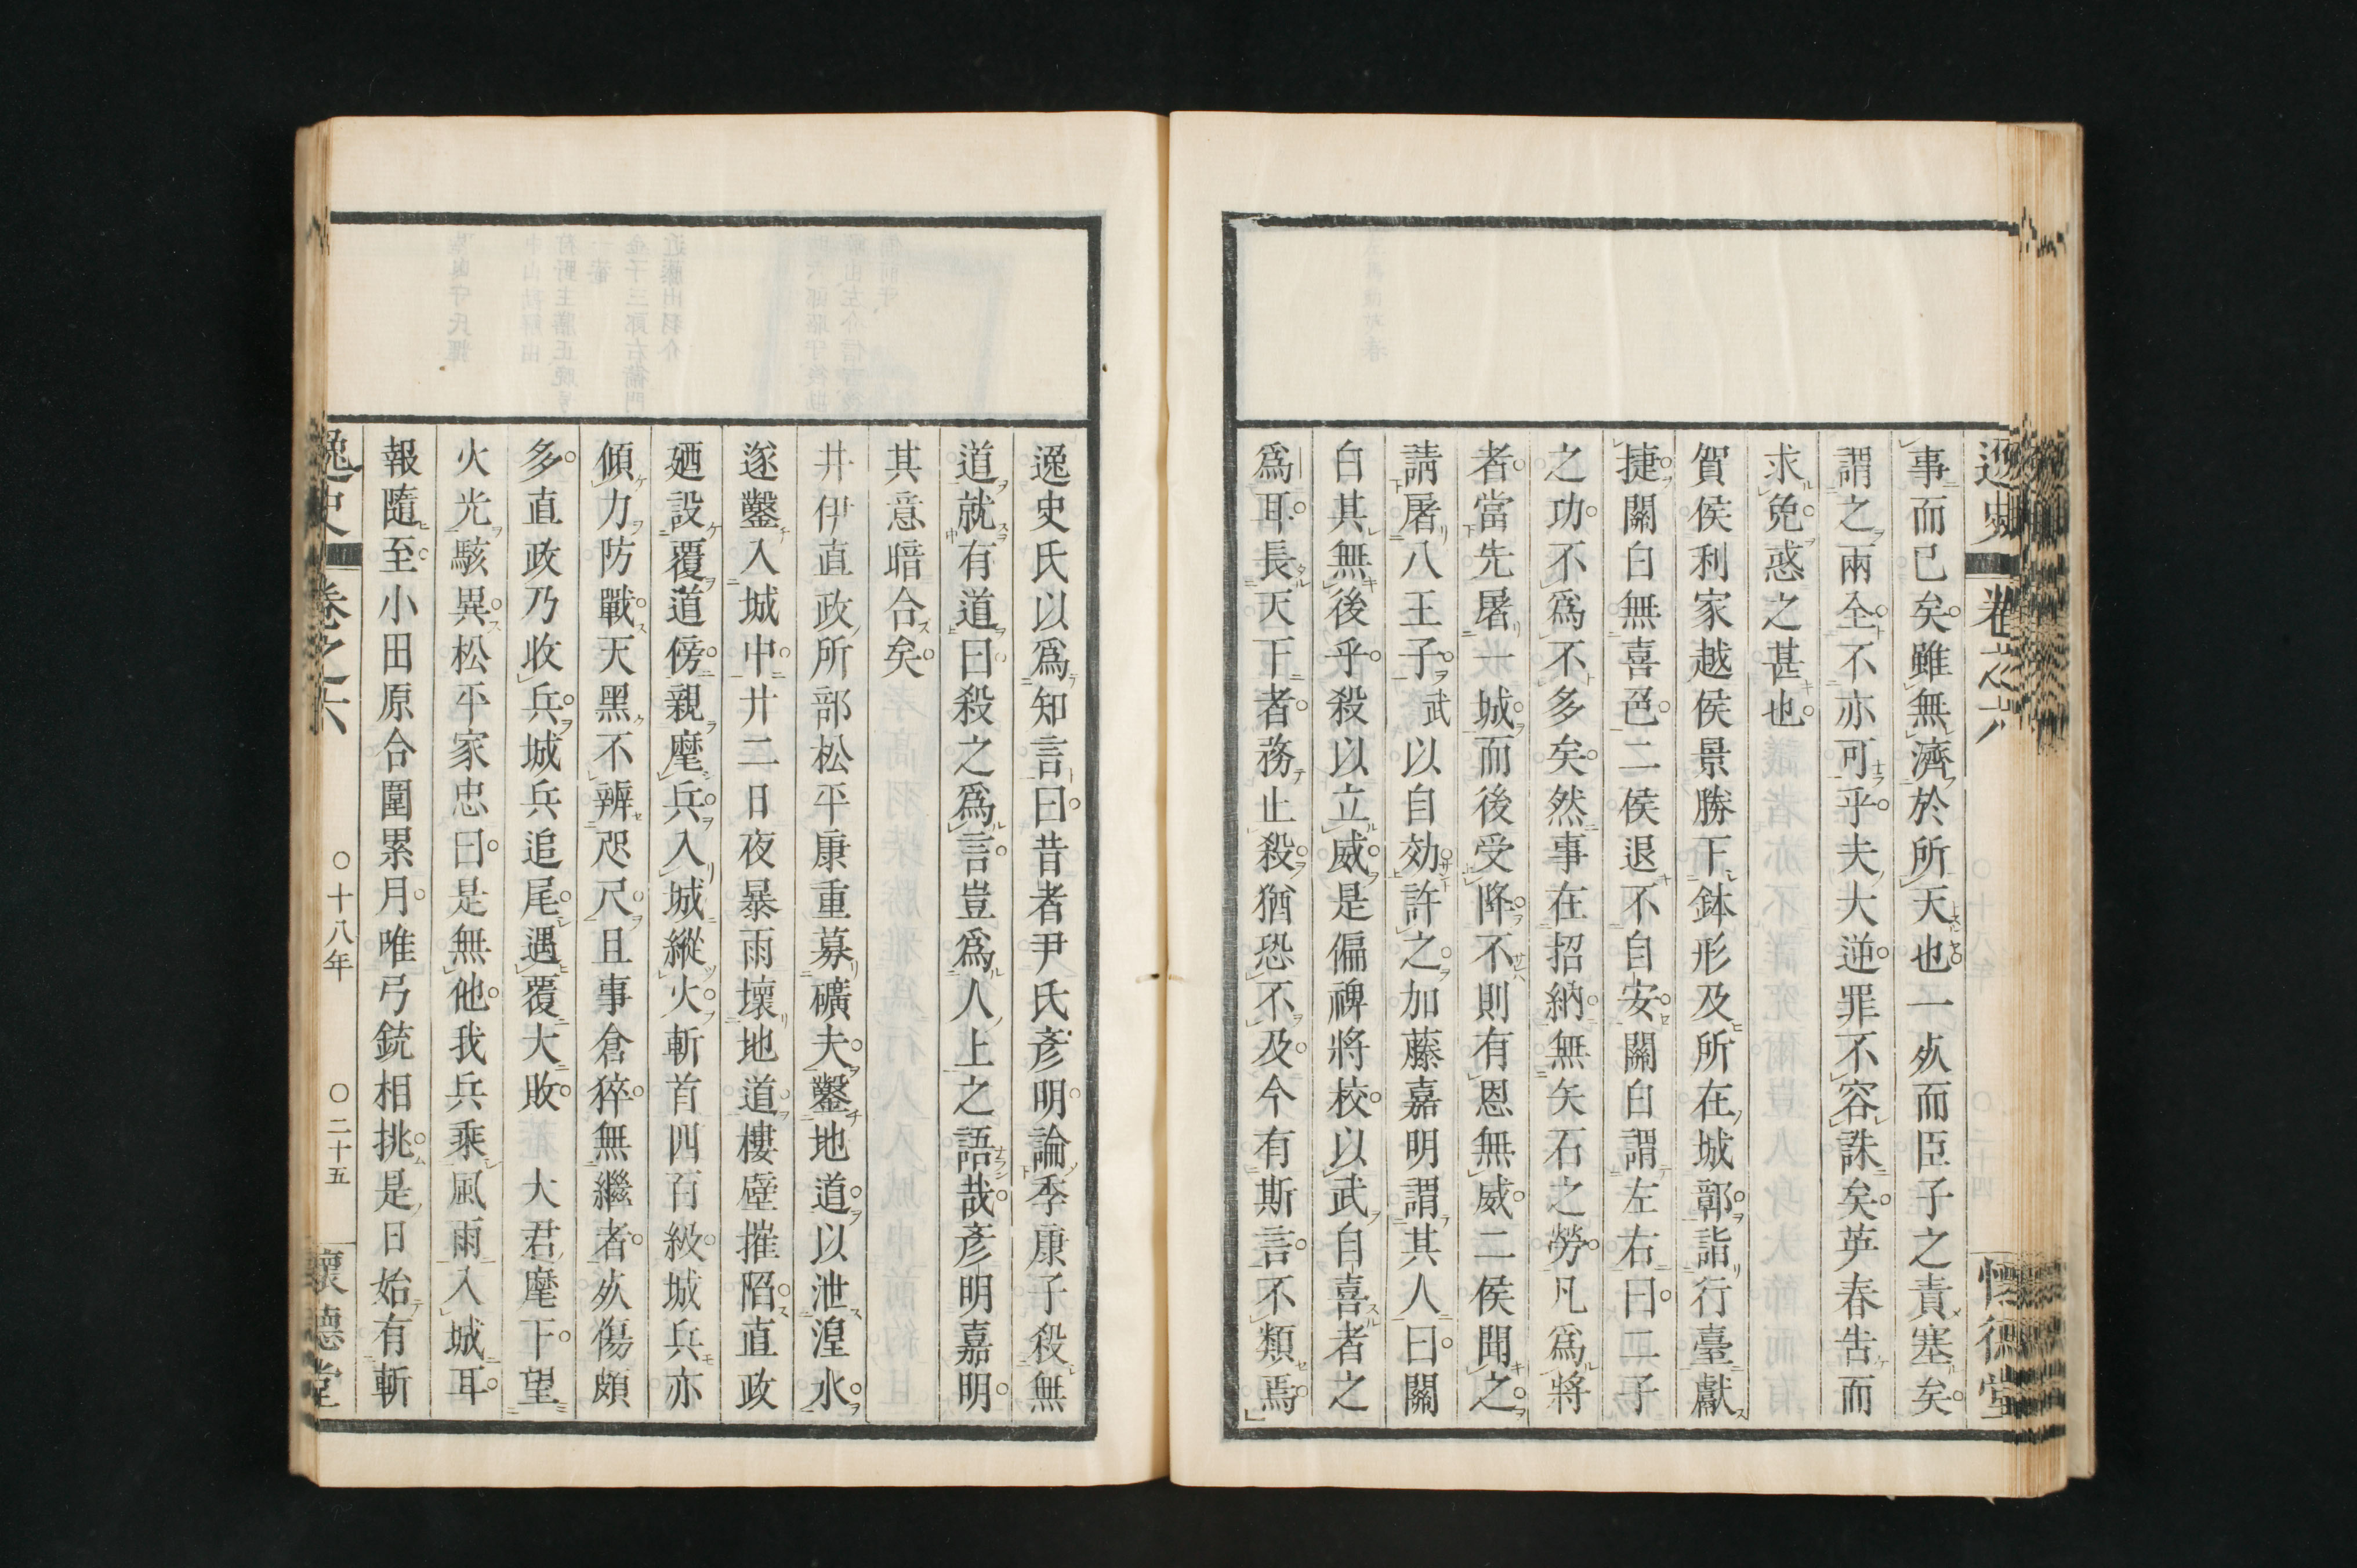 逸史 卷之六 懷德堂
事而已矣雖無濟於所天也一死而臣子之責塞矣
謂之兩全不亦可乎夫大逆罪不容誅矣英春告而
求免惑之甚也
賀侯利家越侯景勝下鉢形及所在城鄣詣行臺獻
捷關白無喜色二侯退不自安關白謂左右曰二子
之功不爲不多矣然事在招納無矢石之勞凡爲將
者當先屠一城而後受降不則有恩無威二侯聞之
請屠八王子武以自効許之加藤嘉明謂其人曰關
白其無後乎殺以立威是偏裨將校以武自喜者之
爲耳長天下者務止殺猶恐不及今有斯言不類焉
逸史氏以爲知言曰昔者尹氏彥明論季康子殺無
道就有道曰殺之爲言豈爲人上之語哉彥明嘉明
其意暗合矣
井伊直政所部松平康重募礦夫鑿地道以泄湟水
遂鑿入城中廿二日夜暴雨壞地道樓壁摧陷直政
廼設覆道傍親麾兵入城縱火斬首四百級城兵亦
傾力防戰天黑不辨咫尺且事倉猝無繼者死傷頗
多直政乃收兵城兵追尾遇覆大敗 大君麾下望
火光駭異松平家忠曰是無他我兵乘風雨入城耳
報隨至小田原合圍累月唯弓銃相挑是日始有斬
逸史 卷之六 〇十八年 〇二十五 懷德堂